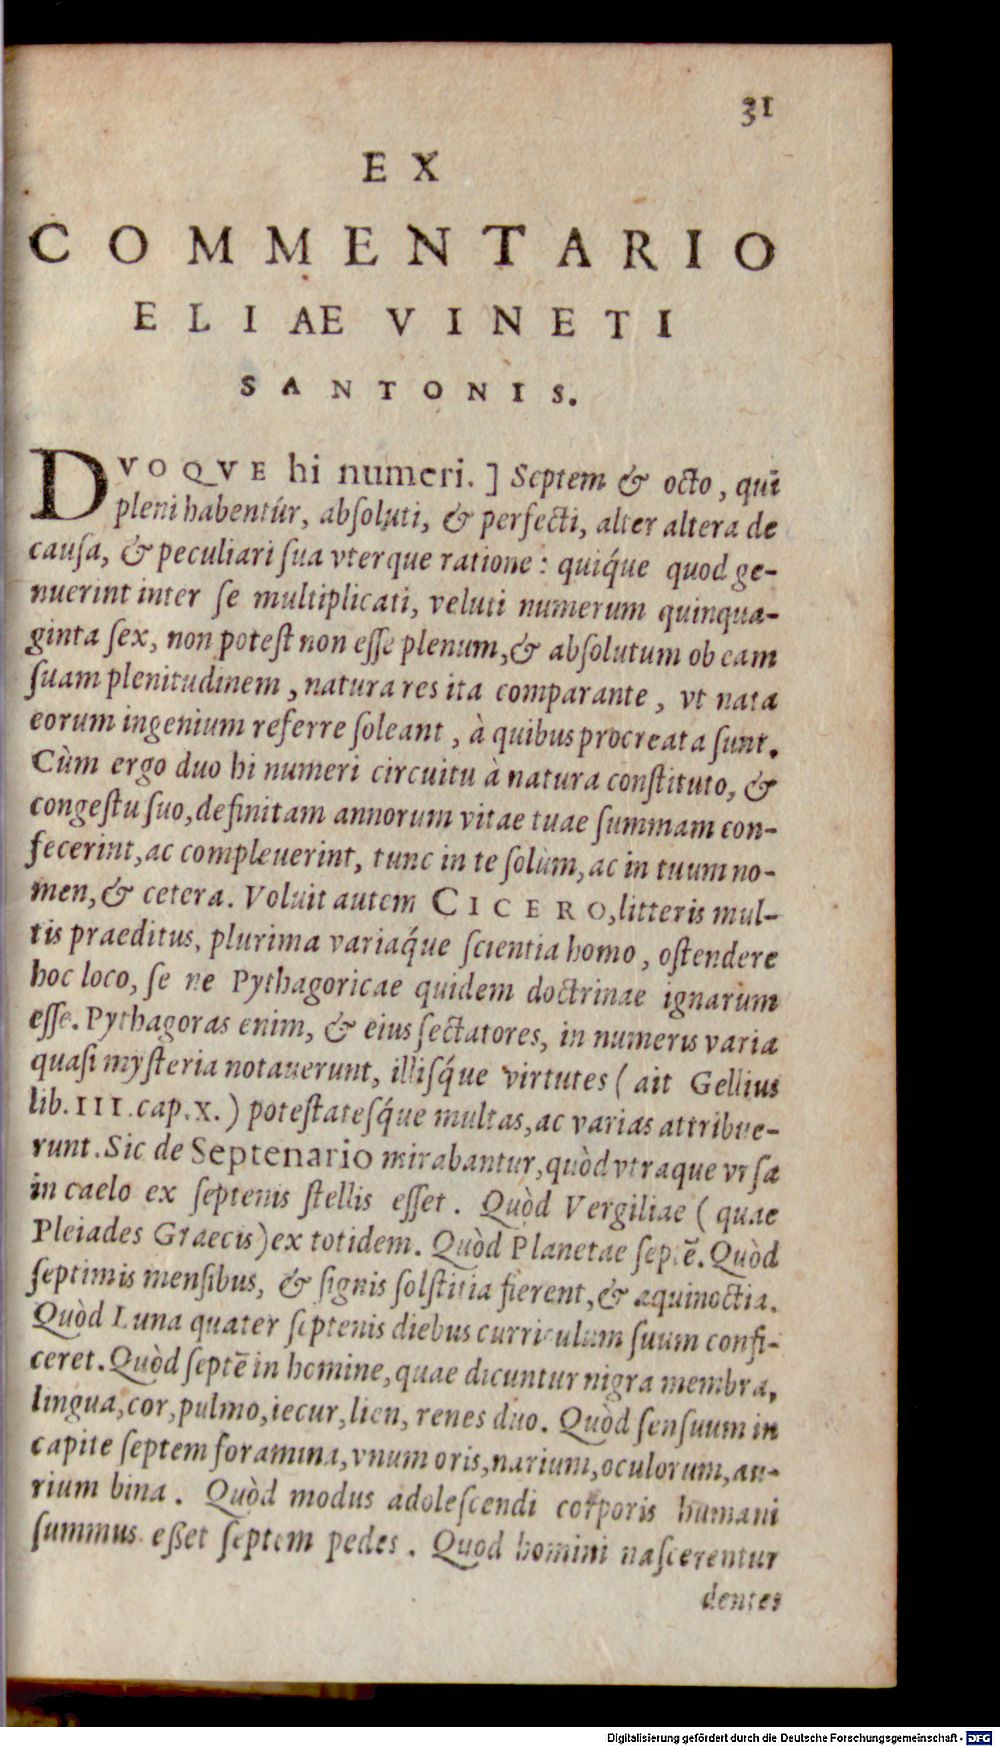 31
EX
COMMENTARIO
ELIAE VINETI
SANTONIS.
DVOQVE hi numeri. ] Septem & octo, quī
pleni habentúr, absoluti, & perfecti, alter altera de
causa, & peculiari sua vterque ratione: quiq́ue quod ge-
nuerint inter se multiplicati, veluti numerum quinqua-
ginta sex, non potest non esse plenum, & absolutum ob eam
suam plenitudinem, natura res ita comparante, vt nata
eorum ingenium referre soleant, à quibus procreata sunt.
Cùm ergo duo hi numeri circuitu à natura constituto, &
congestu suo, definitam annorum vitae tuae summam con-
fecerint, ac compleuerint, tunc in te solùm, ac in tuum no-
men, & cetera. Voluit autem CICERO, litteris mul-
tis praeditus, plurima variaq́ue scientia homo, ostendere
hoc loco, se ne Pythagoricae quidem doctrinae ignarum
esse. Pythagoras enim, & eius sectatores, in numeris varia
quasi mysteria notauerunt, illisq́ue virtutes ( ait Gellius
lib. III. cap. X. ) potestatesq́ue multas, ac varias attribue-
runt. Sic de Septenario mirabantur, quòd vtraque vrsa
in caelo ex septenis stellis esset. Quòd Vergiliae ( quae
Pleiades Graecis) ex totidem. Quòd Planetae septē. Quòd
septimis mensibus, & signis solstitia fierent, & aquinoctia.
Quòd Luna quater septenis diebus curriculum suum confi-
ceret. Quòd septē in homine, quae dicuntur nigra membra,
lingua, cor, pulmo, iecur, lien, renes duo. Quòd sensuum in
capite septem foramina, vnum oris, narium, oculorum, au-
rium bina. Quòd modus adolescendi corporis humani
summus esset septem pedes. Quod homini nascerentur
dentes
Digitalisierung gefördert durch die Deutsche Forschungsgemeinschaft - DFG